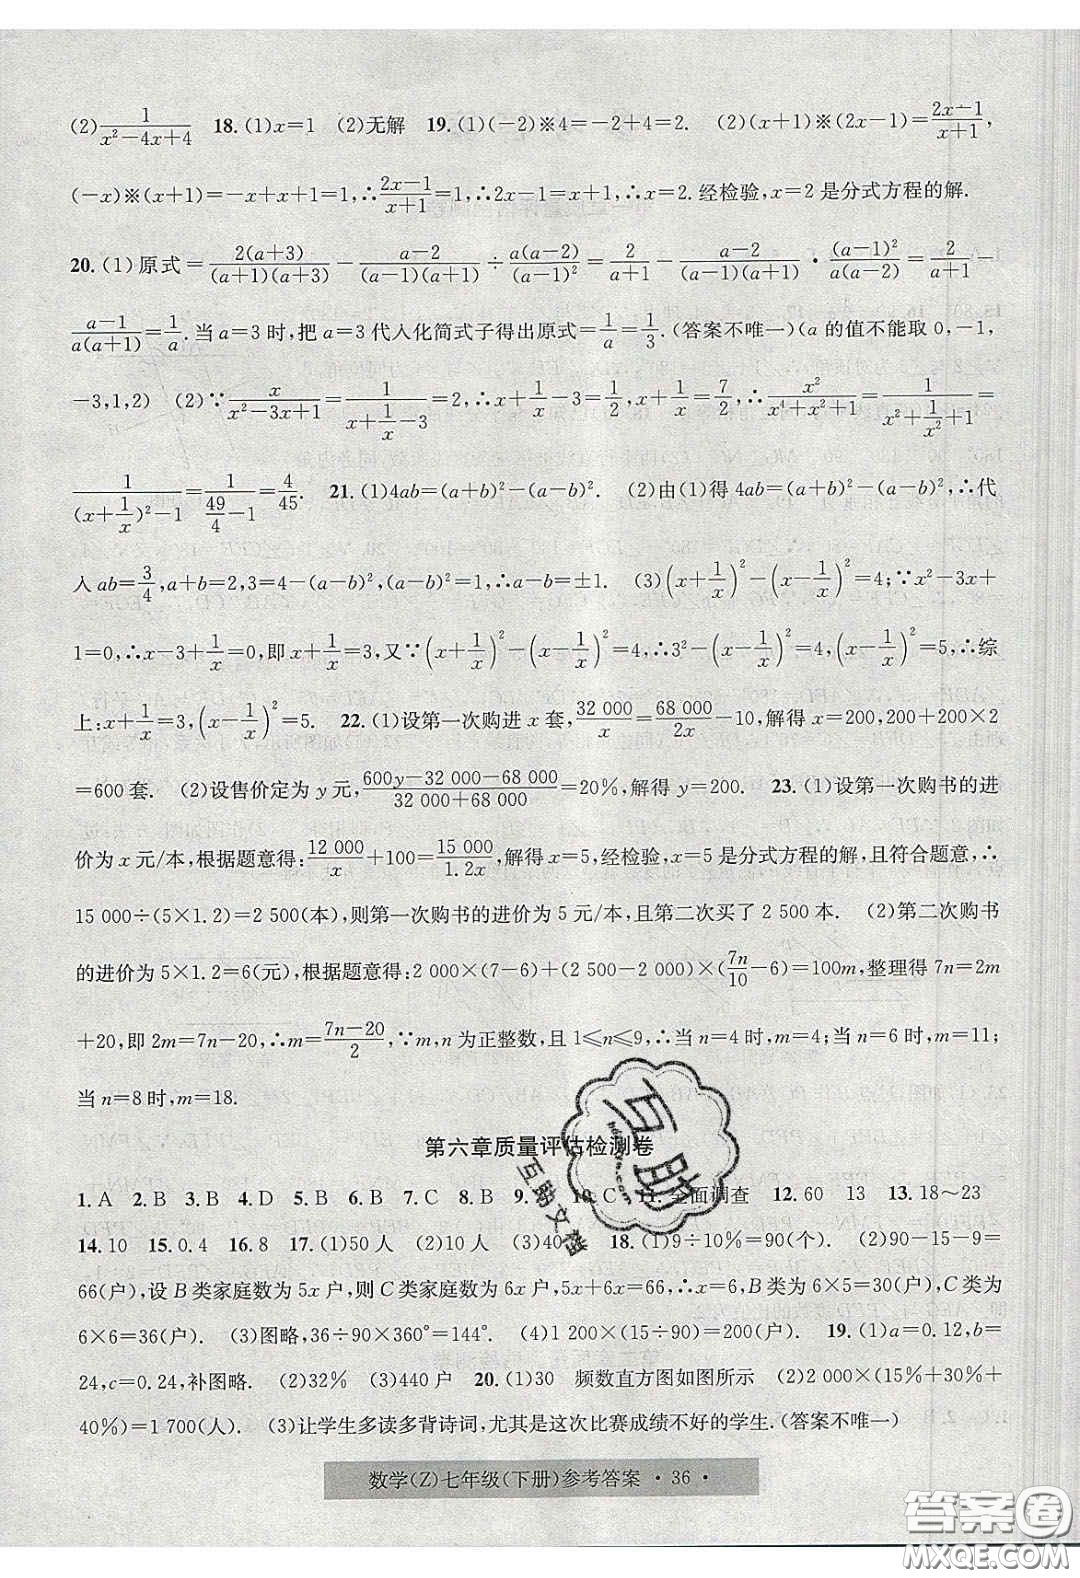 (2)1/(x²−4x+4) 18.(1)x=1 (2)无解 19.(1)(−2)※4=−2+4=2. (2)(x+1)※(2x−1)=(2x−1)/(x+1),
(−x)※(x+1)=−x+x+1=1,∴(2x−1)/(x+1)=1,∴2x−1=x+1,∴x=2.经检验,x=2是分式方程的解.
20.(1)原式=2(a+3)/((a+1)(a+3))−(a−2)/((a−1)(a+1))÷a(a−2)/(a−1)²=2/(a+1)−(a−2)/((a−1)(a+1))·(a−1)²/(a(a−2))=2/(a+1)−
(a−1)/(a(a+1))=1/a.当a=3时,把a=3代入化简式子得出原式=1/a=1/3.(答案不唯一)(a的值不能取0,−1,
−3,1,2) (2)∵x/(x²−3x+1)=1/(x+1/x−3)=2,∴x+1/x−3=1/2,x+1/x=7/2,∴x²/(x⁴+x²+1)=1/(x²+1/x²+1)=
1/((x+1/x)²−1)=1/(49/4−1)=4/45. 21.(1)4ab=(a+b)²−(a−b)². (2)由(1)得4ab=(a+b)²−(a−b)²,∴代
入ab=3/4,a+b=2,3=4−(a−b)²,(a−b)²=1,∴a−b=±1. (3)(x+1/x)²−(x−1/x)²=4;∵x²−3x+
1=0,∴x−3+1/x=0,即x+1/x=3,又∵(x+1/x)²−(x−1/x)²=4,∴3²−(x−1/x)²=4,(x−1/x)²=5,∴综
上:x+1/x=3,(x−1/x)²=5. 22.(1)设第一次购进x套,32 000/x=68 000/2x−10,解得x=200,200+200×2
=600套. (2)设售价定为y元,(600y−32 000−68 000)/(32 000+68 000)=20%,解得y=200. 23.(1)设第一次购书的进
价为x元/本,根据题意得:12 000/x+100=15 000/1.2x,解得x=5,经检验,x=5是分式方程的解,且符合题意,∴
15 000÷(5×1.2)=2 500(本),则第一次购书的进价为5元/本,且第二次买了2 500本. (2)第二次购书
的进价为5×1.2=6(元),根据题意得:2 000×(7−6)+(2 500−2 000)×(7n/10−6)=100m,整理得7n=2m
+20,即2m=7n−20,∴m=(7n−20)/2,∵m,n为正整数,且1≤n≤9,∴当n=4时,m=4;当n=6时,m=11;
当n=8时,m=18.
第六章质量评估检测卷
1.A 2.B 3.B 4.D 5.B 6.B 7.C 8.B 9. 10.C 11.全面调查 12.60 13 13.18~23
14.10 15.0.4 16.8 17.(1)50人 (2)10人 (3)40 18.(1)9÷10%=90(个). (2)90−15−9=
66(户),设B类家庭数为5x户,则C类家庭数为6x户,5x+6x=66,∴x=6,B类为6×5=30(户),C类为
6×6=36(户). (3)图略,36÷90×360°=144°. (4)1 200×(15÷90)=200(户). 19.(1)a=0.12,b=
24,c=0.24,补图略. (2)32% (3)440户 20.(1)30 频数直方图如图所示 (2)2 000×(15%+30%+
40%)=1 700(人). (3)让学生多读多背诗词,尤其是这次比赛成绩不好的学生.(答案不唯一)
数学(Z)七年级(下册)参考答案·36·
互助
互助文档
答案圈
MXQE.COM